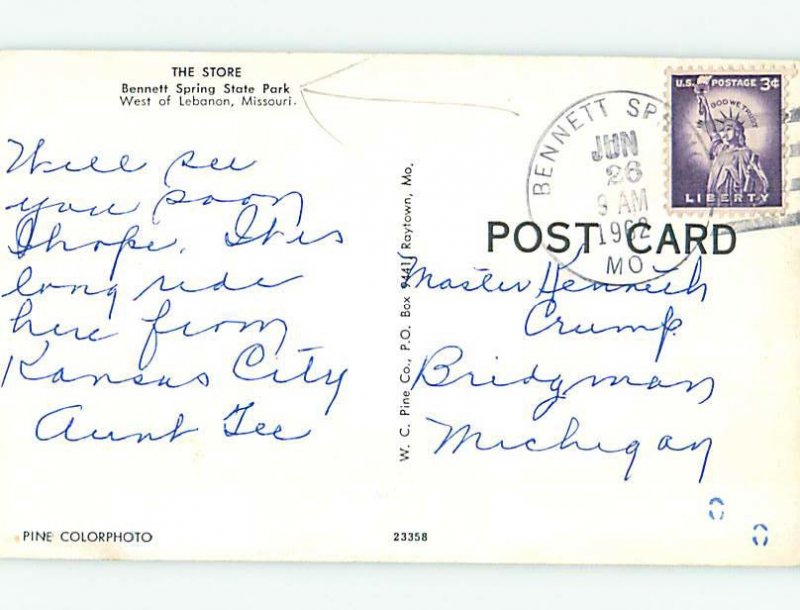 THE STORE
Bennett Spring State Park
West of Lebanon, Missouri.
Will see
you soon
I hope. It is
long ride
here from
Kansas City
Aunt Tee
PINE COLORPHOTO
23358
W. C. Pine Co., P.O. Box 9441, Raytown, Mo.
BENNETT SP
JUN
26
9 AM
1962
MO
U.S. POSTAGE 3¢
IN GOD WE TRUST
LIBERTY
POST CARD
Master Kenneth
Crump
Bridgman
Michigan